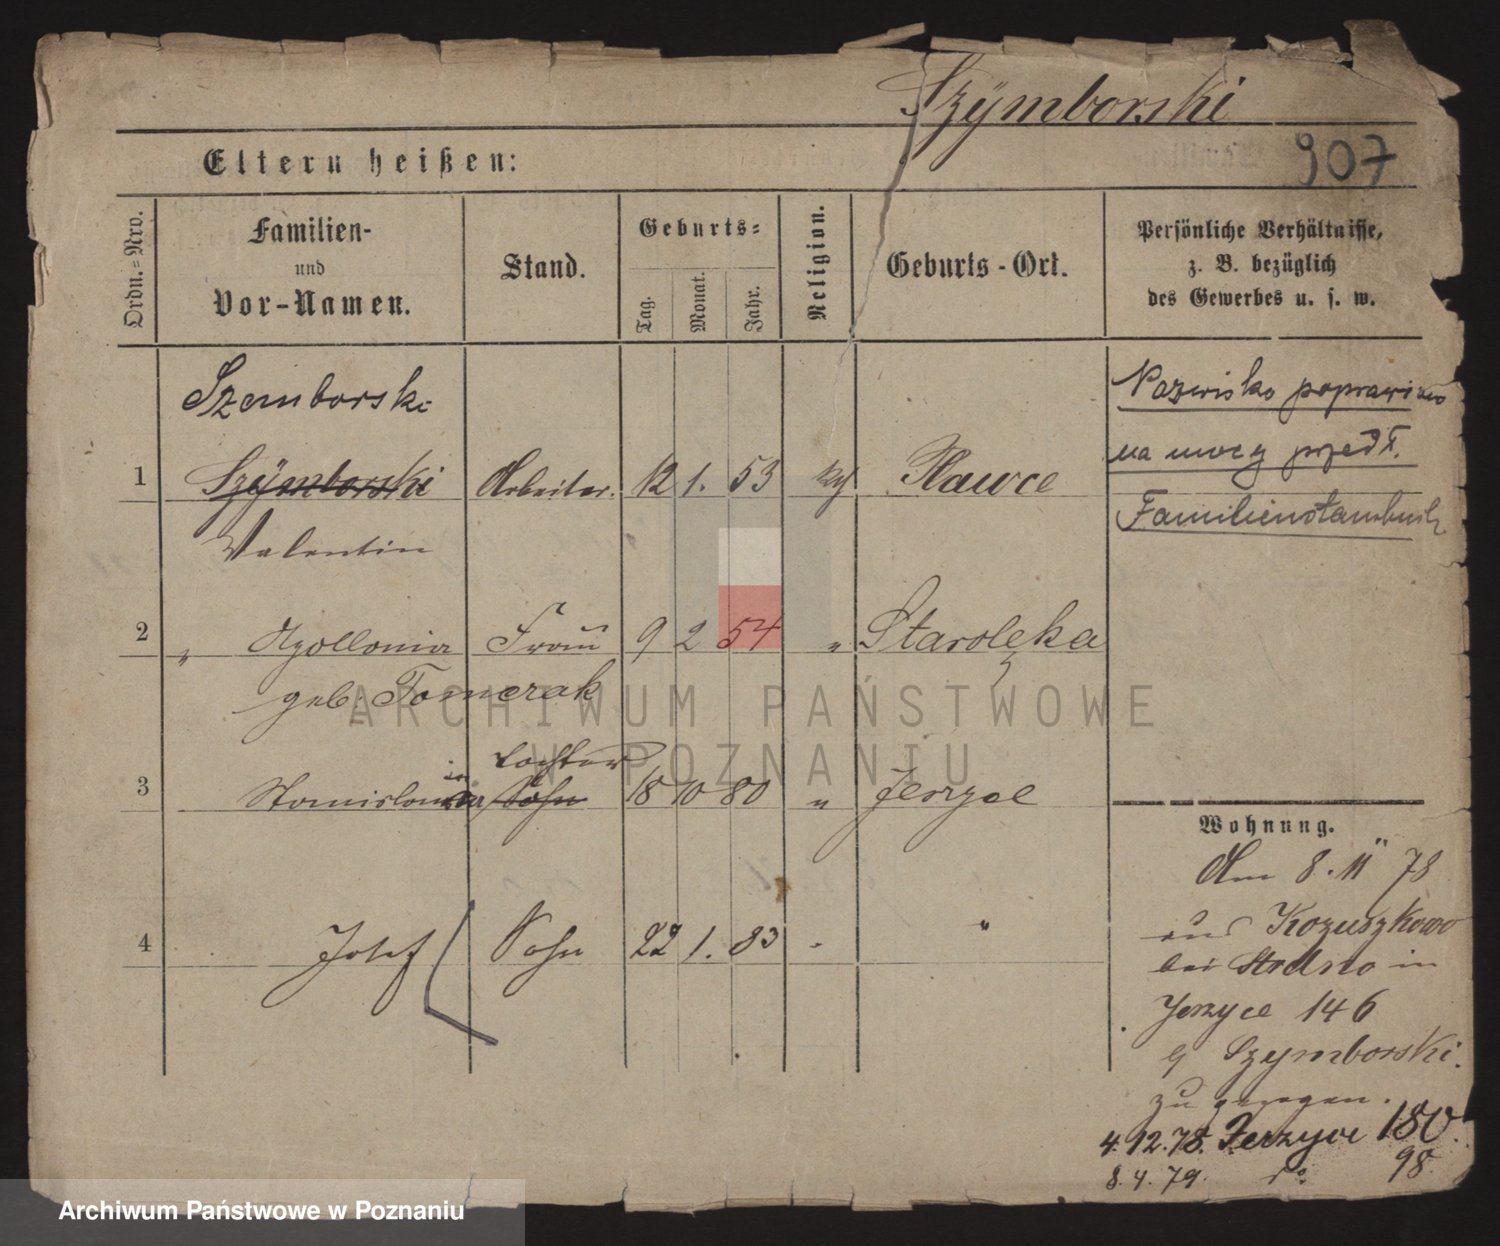 Szÿmborski
907
Eltern heißen:
Ordn.=Nro.
Familien-
und
Vor-Namen.
Stand.
Geburts=
Tag.
Monat.
Jahr.
Religion.
Geburts-Ort.
Persönliche Verhältnisse,
z. B. bezüglich
des Gewerbes u. s. w.
Szemborski
Nazwisko poprawiono
na mocy przedł.
Familienstambuch
1 Szÿmborski Arbeiter. 12 1. 53 Hawce
Valentin
2 " Apollonia Frau 9 2 54 " Starolęka
geb. Tomczak
Tochter
3 Stanislawa Sohn 18 10 80 " Jerzyce
4 Josef Sohn 22 1. 83 " "
Wohnung.
Am 8. 11 78
aus Kozuszkowo
bei Strelno in
Jerzyce 146
Szymborski.
zu gezogen.
4.12.78. Jerzyce 180.
8.4.79. do 98.
ARCHIWUM PAŃSTWOWE
W POZNANIU
Archiwum Państwowe w Poznaniu